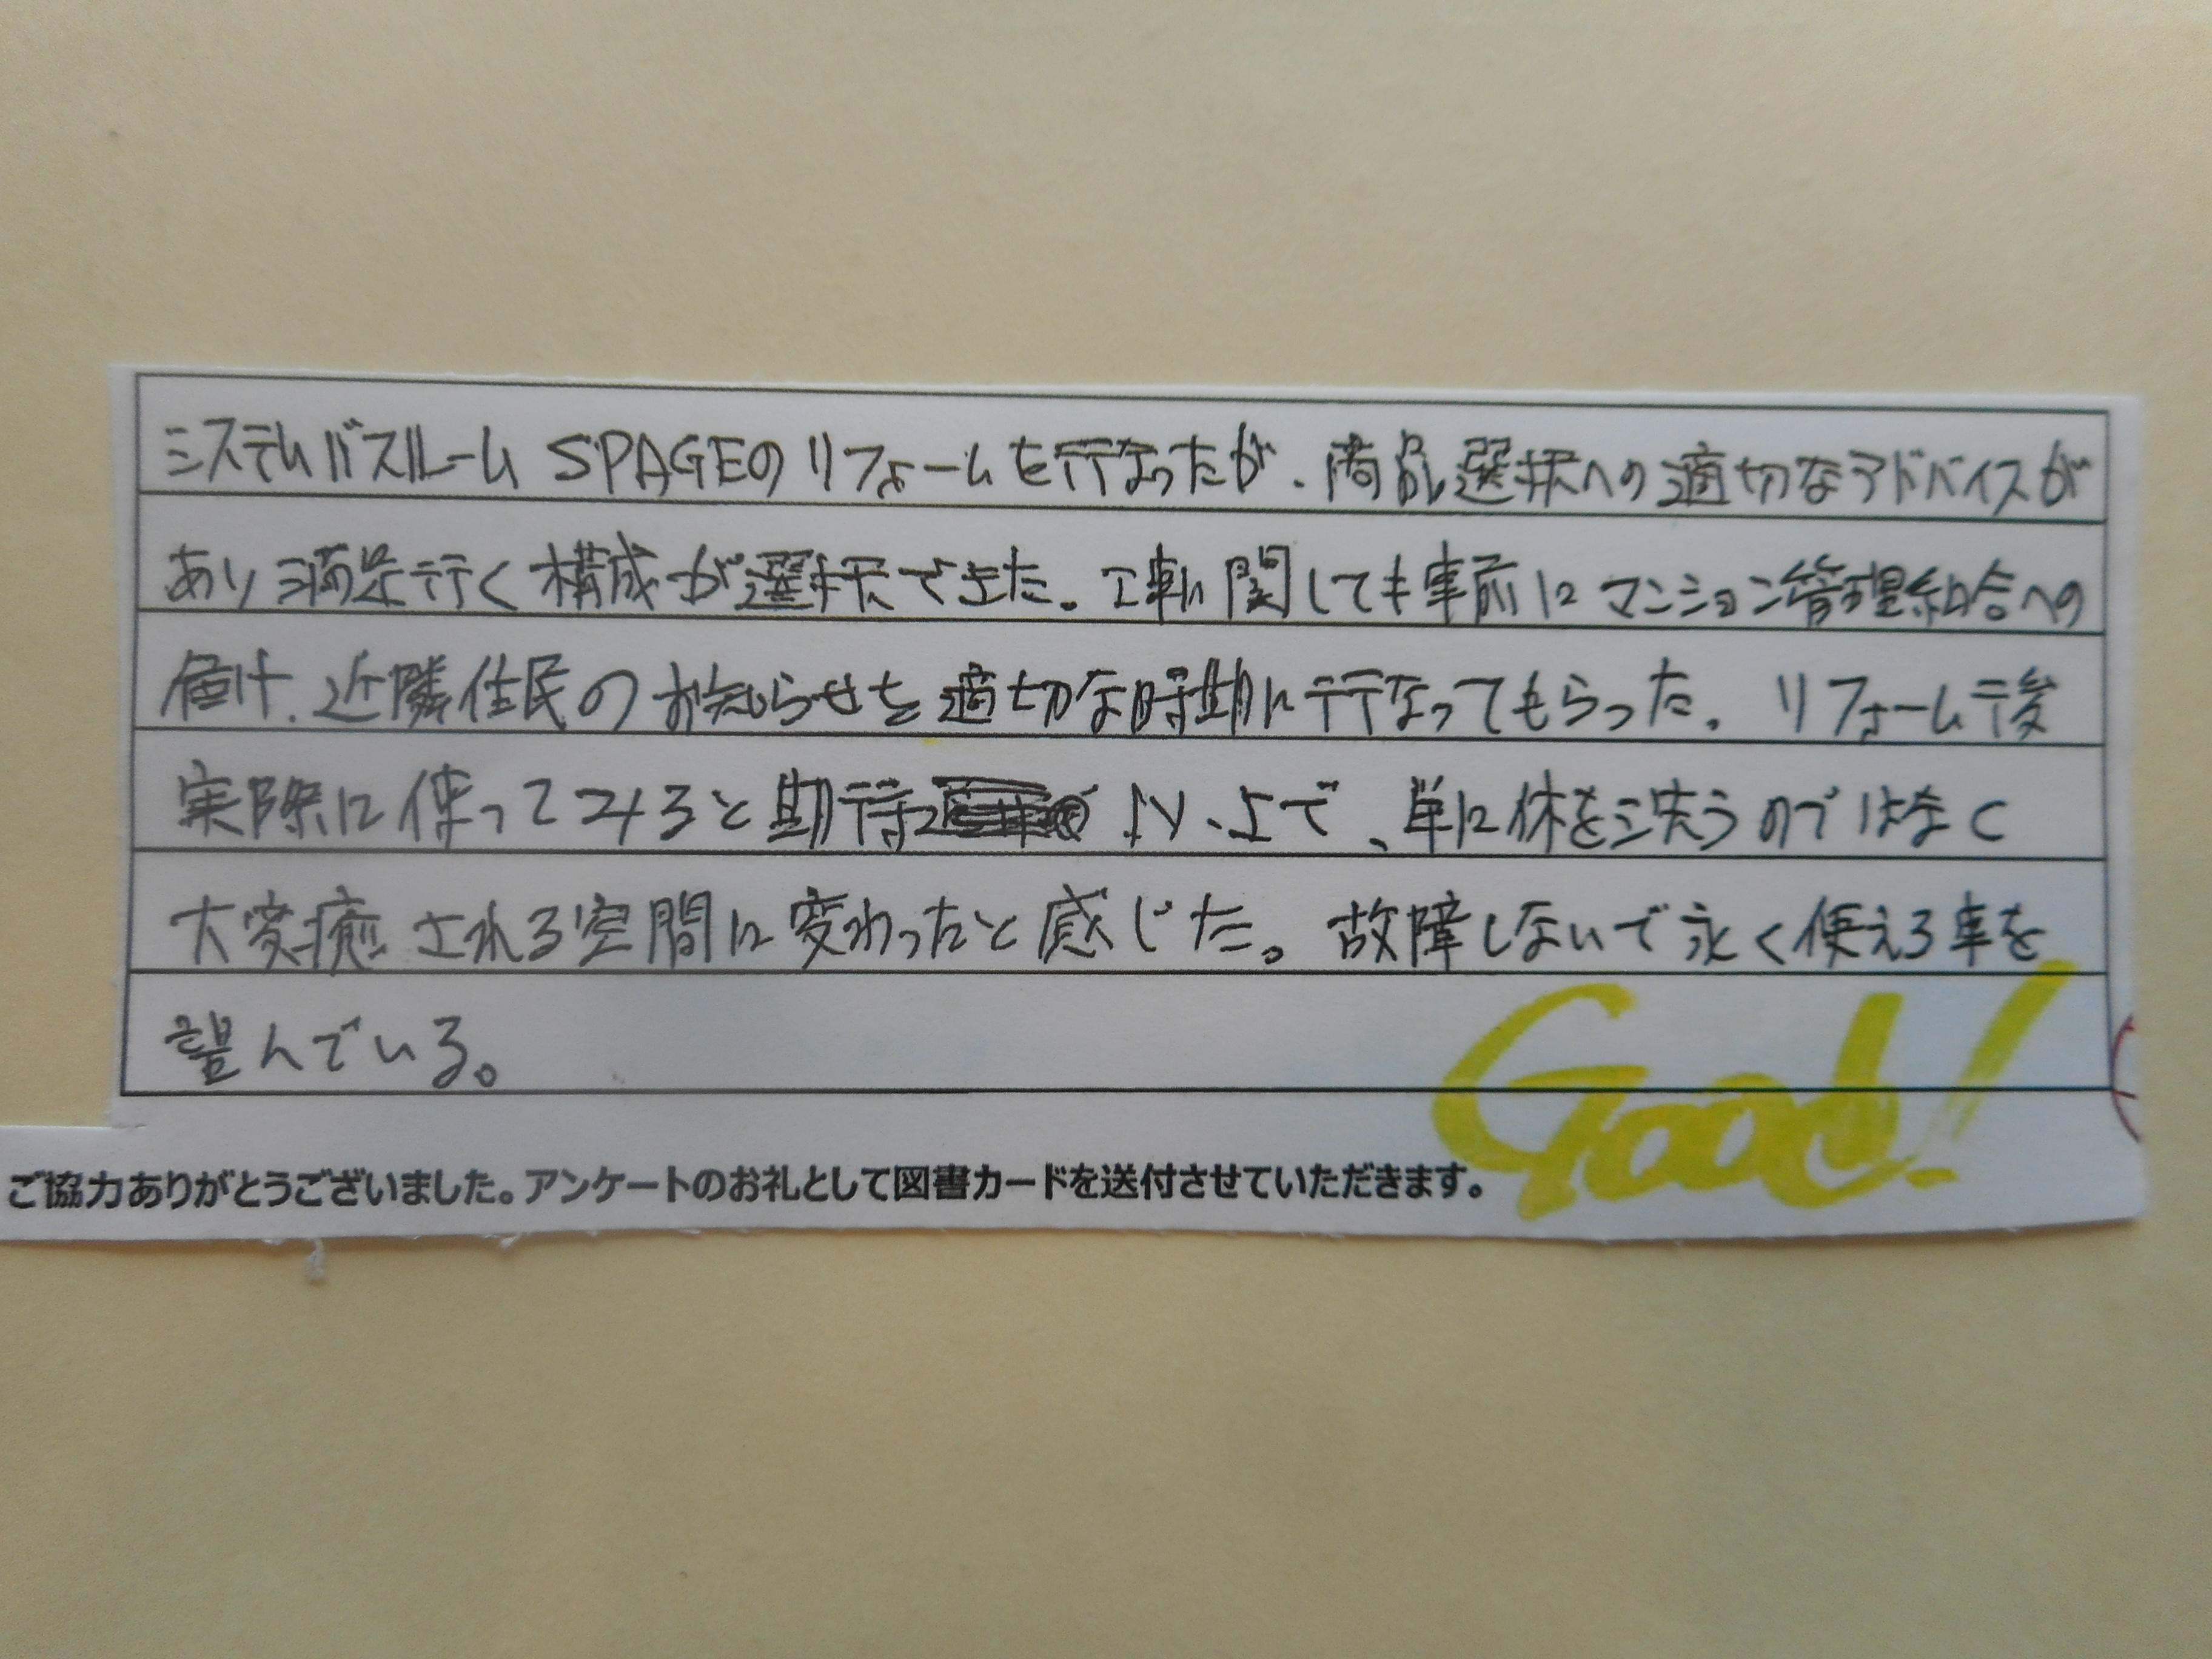 システムバスルーム SPAGEのリフォームを行なったが、商品選択への適切なアドバイスが
あり満足行く構成が選択できた。工事に関しても事前にマンション管理組合への
届け、近隣住民のお知らせを適切な時期に行なってもらった。リフォーム後
実際に使ってみると期待以上で、単に体を洗うのではなく
大変癒される空間に変わったと感じた。故障しないで永く使える事を
望んでいる。
Good!
ご協力ありがとうございました。アンケートのお礼として図書カードを送付させていただきます。